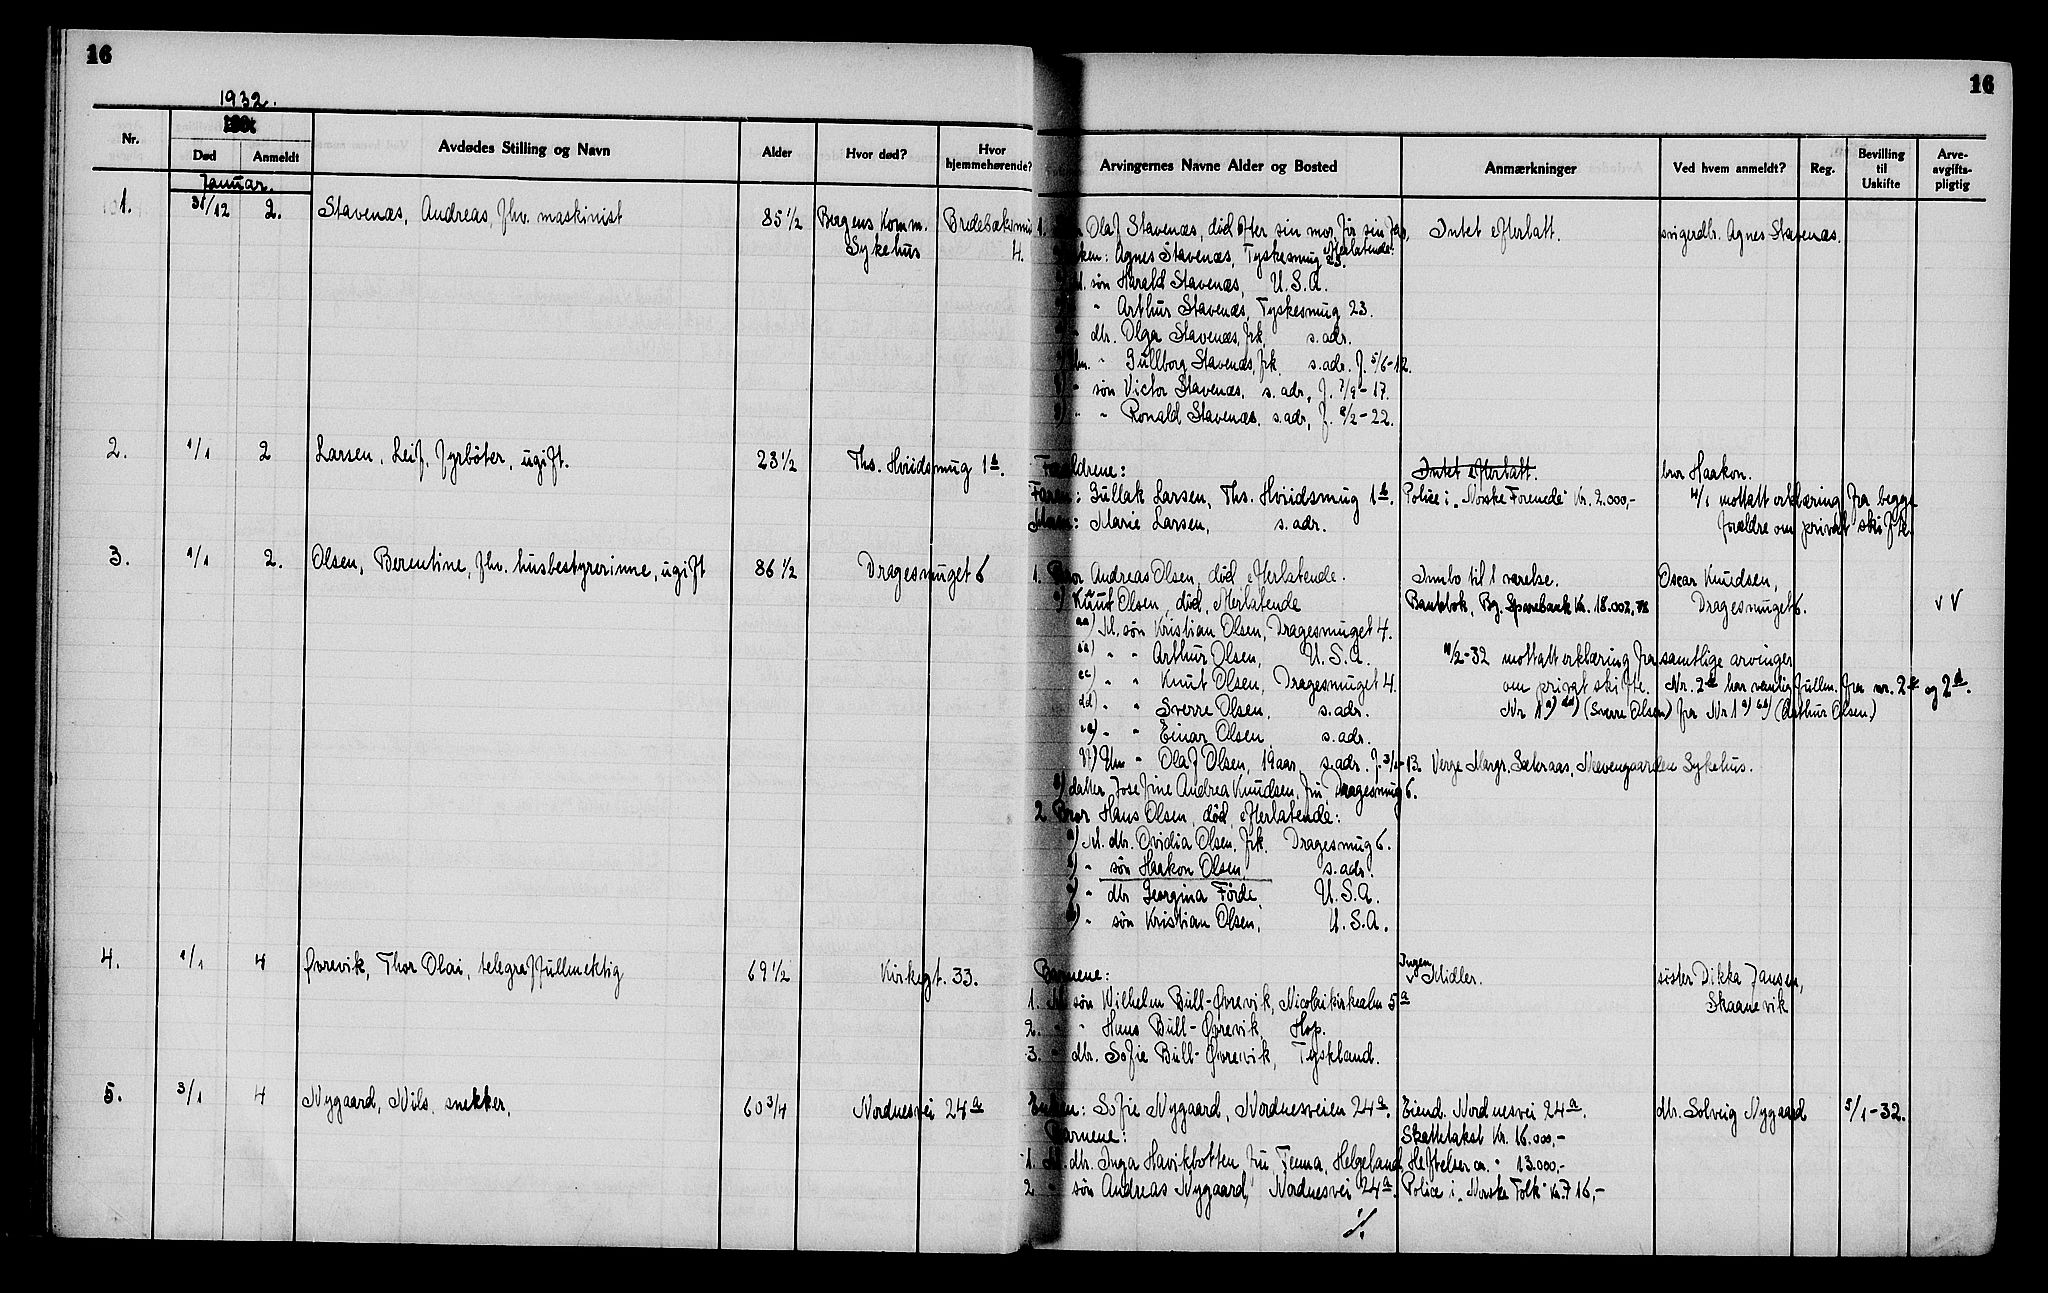 16
16
1932.
Nr. Død Anmeldt Avdødes Stilling og Navn Alder Hvor død? Hvor hjemmehørende?
Arvingernes Navne Alder og Bosted Anmærkninger Ved hvem anmeldt? Reg. Bevilling til Uskifte Arve-avgifts-pligtig
Januar.
1. 31/12 2. Stavenæs, Andreas, fhv. maskinist 85 1/2 Bergens Komm. Sykehus Bredebæksmug 4.
1. Olaf Stavenæs, død efter sin mor, før sin far, efterlatende: Intet efterlatt. svigerdtr. Agnes Stavenæs.
Enken: Agnes Stavenæs, Tyskesmug 23.
M. søn Harald Stavenæs, U.S.A.
" Arthur Stavenæs, Tyskesmug 23.
dtr. Olga Stavenæs, frk. s. adr.
Um. " Gullborg Stavenæs, frk. s. adr. f. 5/6-12.
" søn Victor Stavenæs, s. adr, f. 7/9-17.
" " Ronald Stavenæs, s. adr, f. 8/2-22.
2. 1/1 2 Larsen, Leif, fyrbøter, ugift. 23 1/2 Ths. Hviidsmug 1b.
Forældrene: Intet efterlatt. bror Haakon.
Faren: Gullak Larsen, Ths. Hviidsmug 1b. Police i "Norske Forenede" Kr. 2.000,- 4/1 mottatt erklæring fra begge
Moren: Marie Larsen, s. adr. forældre om privat skifte.
3. 1/1 2. Olsen, Berentine, fhv. husbestyrerinne, ugift 86 1/2 Dragesmuget 6
1. Bror Andreas Olsen, død, efterlatende. Innbo til 1 værelse. Oscar Knudsen,
a) Knut Olsen, død, efterlatende Bankbok, Bg. Sparebank Kr. 18.002, Dragesmuget 6. v V
aa) M. søn Kristian Olsen, Dragesmuget 4.
" " Arthur Olsen, U.S.A. 11/2-32 mottatt erklæring fra samtlige arvinger
cc) " " Knut Olsen, Dragesmuget 4. om privat skifte. Nr. 2 har fullm. fra nr. 2 og 2d.
dd) " " Sverre Olsen, s. adr. Nr 1 a) dd) (Sverre Olsen) fra Nr 1 a) (Arthur Olsen)
" " Einar Olsen s. adr.
ff) Um " Olaf Olsen, 19 aar, s. adr. f. -13. Verge Margr. Sæteraas, Neevengaarden Sykehus.
datter Josefine Andrea Knudsen, fru, Dragesmug 6.
2. Bror Hans Olsen, død, efterlatende:
a) M. dtr. Ovidia Olsen, frk. Dragesmug 6.
" søn Haakon Olsen, s. adr.
" dtr Georgina Førde, U.S.A.
" søn Kristian Olsen, U.S.A.
4. 1/1 4 Øvrevik, Thor Olai, telegraffullmektig 69 1/2 Kirkegt. 33.
Barnene: Ingen Midler. søster Dikka Jansen,
1. M. søn Wilhelm Bull-Øvrevik, Nicolaikirkealm 5a Skaanevik
2. " " Hans Bull-Øvrevik, Hop.
3. " dtr. Sofie Bull-Øvrevik, Tyskland.
5. 3/1 4 Nygaard, Nils, snekker, 60 3/4 Nordnesvei 24a
Enken: Sofie Nygaard, Nordnesveien 24a. Eiend. Nordnesvei 24a. dtr. Solveig Nygaard 5/1-32.
Barnene: Skattetakst Kr. 16.000,-
1. M. dtr. Inga Havikbotten, fru, Tenna, Helgeland, Heftelser ca. " 13.000,-
2 " søn Andreas Nygaard, Nordnesvei 24a. Police i "Norske Folk" Kr. 716,-
·/.